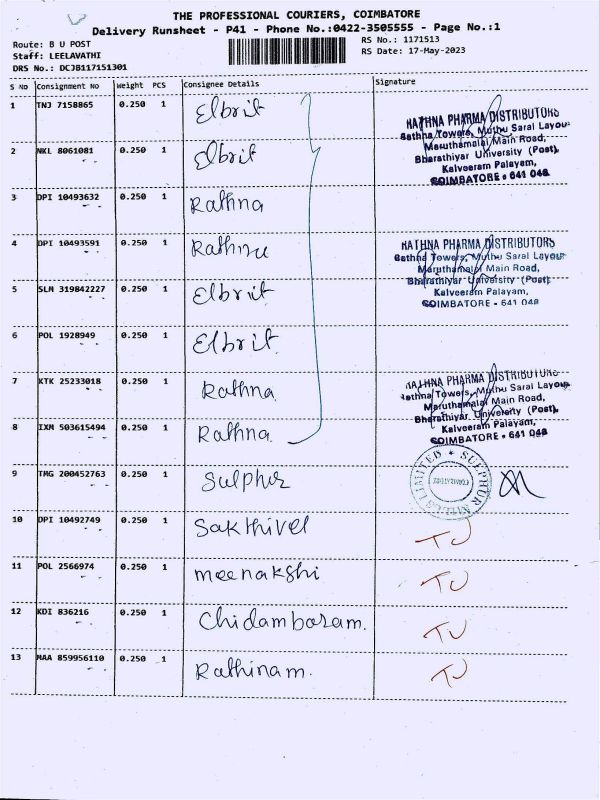 THE PROFESSIONAL COURIERS, COIMBATORE
Delivery Runsheet - P41 - Phone No.:0422-3505555 - Page No.:1
Route: B U POST
RS No.: 1171513
Staff: LEELAVATHI
RS Date: 17-May-2023
DRS No.: DCJB117151301
S No Consignment No Weight PCS Consignee Details Signature
1 TNJ 7158865 0.250 1 Elbrit
RATHNA PHARMA DISTRIBUTORS
Rathna Towers, Muthu Saral Layou
Maruthamalai Main Road,
Bharathiyar University (Post),
Kalveeram Palayam,
COIMBATORE - 641 046
2 NKL 8061081 0.250 1 Elbrit
3 DPI 10493632 0.250 1 Rathna
4 DPI 10493591 0.250 1 Rathna
RATHNA PHARMA DISTRIBUTORS
Rathna Towers, Muthu Saral Layou
Maruthamalai Main Road,
Bharathiyar University (Post),
Kalveeram Palayam,
COIMBATORE - 641 046
5 SLM 319842227 0.250 1 Elbrit
6 POL 1928949 0.250 1 Elbrit
7 KTK 25233018 0.250 1 Rathna
RATHNA PHARMA DISTRIBUTORS
Rathna Towers, Muthu Saral Layou
Maruthamalai Main Road,
Bharathiyar University (Post),
Kalveeram Palayam,
COIMBATORE - 641 046
8 IXM 503615494 0.250 1 Rathna
9 TMG 200452763 0.250 1 Sulphur
SULPHUR MILLS LIMITED
COIMBATORE
10 DPI 10492749 0.250 1 Sakthivel TJ
11 POL 2566974 0.250 1 meenakshi TJ
12 KDI 836216 0.250 1 Chidambaram. TJ
13 MAA 859956110 0.250 1 Rathinam. TJ